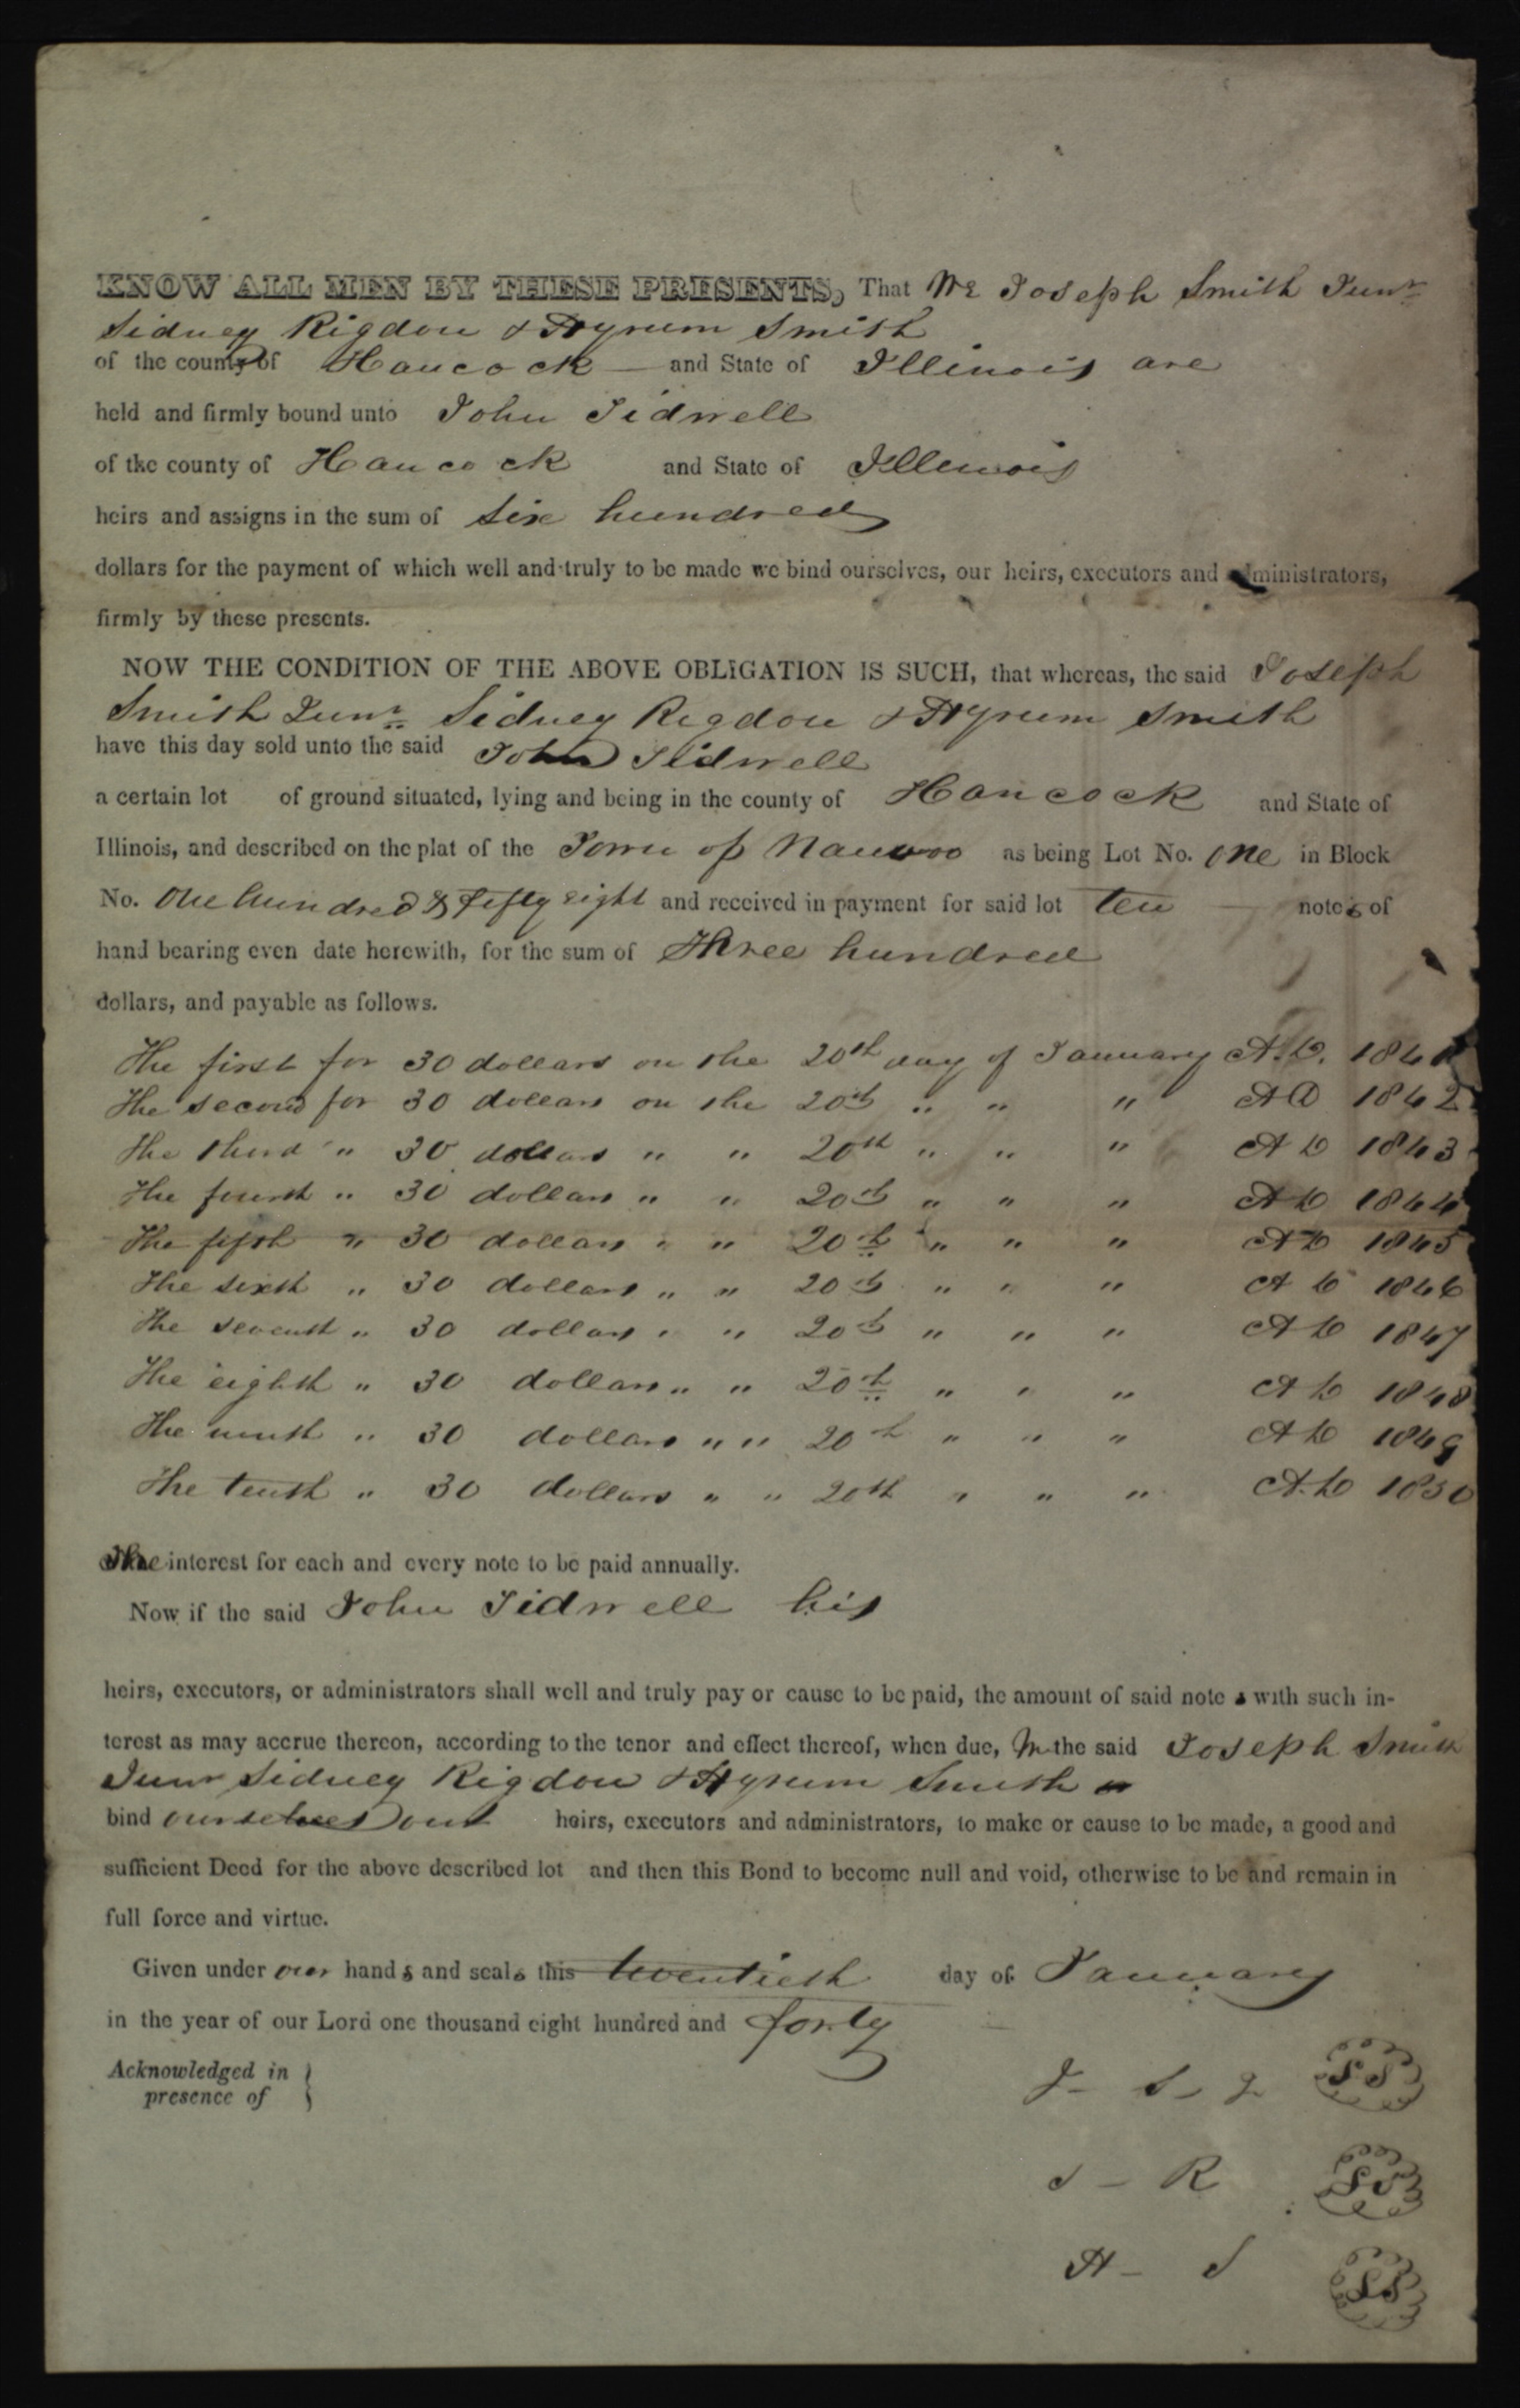 KNOW ALL MEN BY THESE PRESENTS, That We Joseph Smith Junr
Sidney Rigdon & Hyrum Smith
of the county of Hancock and State of Illinois are
held and firmly bound unto John Tidwell
of tke county of Hancock and State of Illinois
heirs and assigns in the sum of Six hundred
dollars for the payment of which well and truly to be made we bind ourselves, our heirs, executors and administrators,
firmly by these presents.
NOW THE CONDITION OF THE ABOVE OBLIGATION IS SUCH, that whereas, the said Joseph
Smith Junr Sidney Rigdon & Hyrum Smith
have this day sold unto the said John Tidwell
a certain lot of ground situated, lying and being in the county of Hancock and State of
Illinois, and described on the plat of the Town of Nauvoo as being Lot No. one in Block
No. One hundred & fifty eight and received in payment for said lot ten notes of
hand bearing even date herewith, for the sum of Three hundred
dollars, and payable as follows.
The first for 30 dollars on the 20th day of January A.D. 1841
The second for 30 dollars on the 20th " " " AD 1842
The third " 30 dollars " " 20th " " " AD 1843
The fourth " 30 dollars " " 20th " " " AD 1844
The fifth " 30 dollars " " 20th " " " AD 1845
The sixth " 30 dollars " " 20th " " " AD 1846
The seventh " 30 dollars " " 20th " " " AD 1847
The eighth " 30 dollars " " 20th " " " AD 1848
The ninth " 30 dollars " " 20th " " " AD 1849
The tenth " 30 dollars " " 20th " " " A.D 1850
The interest for each and every note to be paid annually.
Now if the said John Tidwell his
heirs, executors, or administrators shall well and truly pay or cause to be paid, the amount of said notes with such in-
terest as may accrue thereon, according to the tenor and effect thereof, when due, We the said Joseph Smith
Junr Sidney Rigdon & Hyrum Smith
bind ourselves our heirs, executors and administrators, to make or cause to be made, a good and
sufficient Deed for the above described lot and then this Bond to become null and void, otherwise to be and remain in
full force and virtue.
Given under our hands and seals this twentieth day of January
in the year of our Lord one thousand eight hundred and forty
Acknowledged in
presence of
J- S- J SS
S - R SS
H - S SS